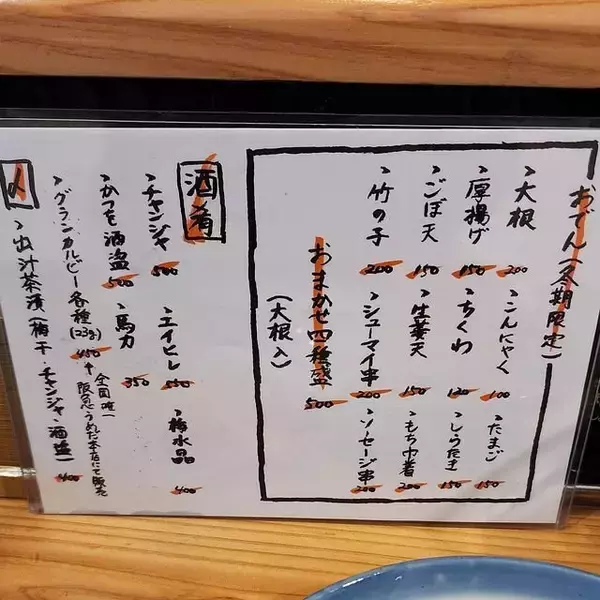 おでん(冬期限定)
、大根 200
、こんにゃく 100
、たまご 150
、厚揚げ 150
、ちくわ 120
、しらたき 150
、ごぼ天 150
、生姜天 150
、もち巾着 200
、竹の子 200
、シューマイ串 200
、ソーセージ串 200
おまかせ四種盛 500
(大根入)
酒肴
、チャンジャ 500
、エイヒレ 550
、梅水晶 400
、かつを酒盗 500
、馬力 350
、グランカルビー各種(23g) 450
↑全国唯一
阪急うめだ本店にて販売
〆
、出汁茶漬(梅干・チャンジャ・酒盗) 400